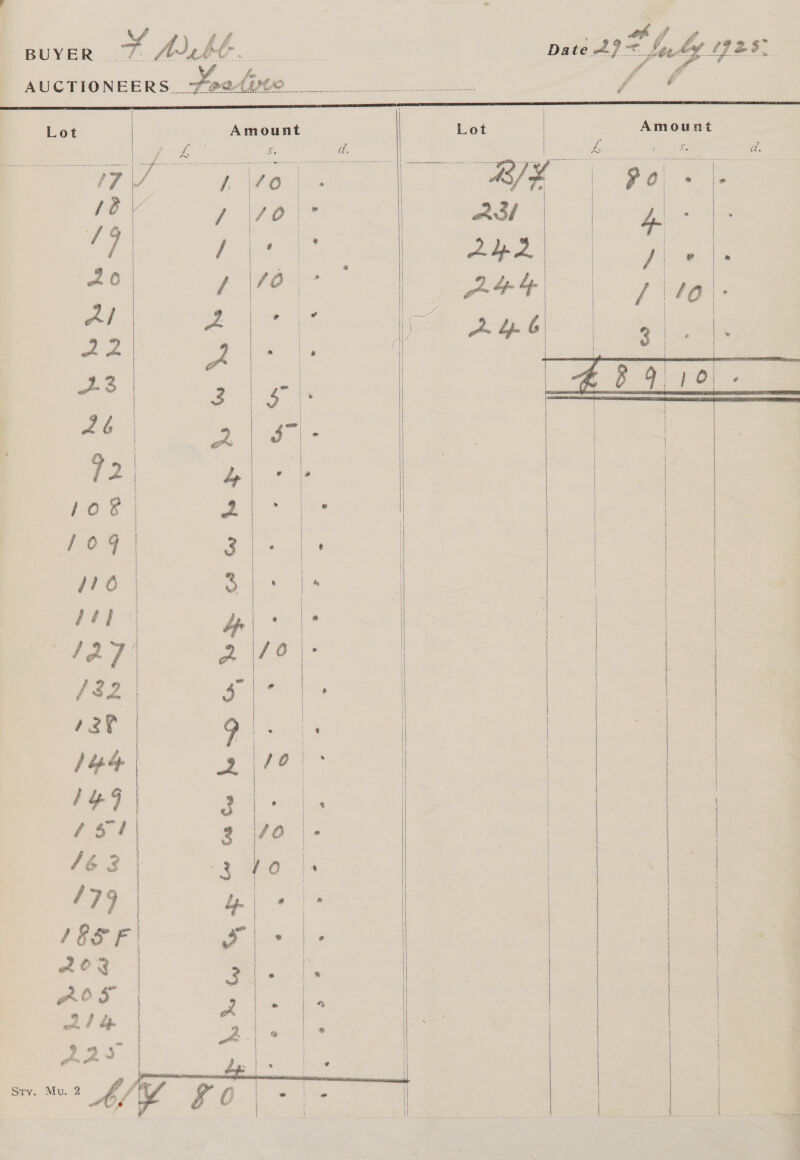 BUYER F Webb. Date 29th July 1925
AUCTIONEERS
Lot Amount Lot Amount
£ s. d. £ s. d.
17 ✓ 1 10 - B/F 80 - -
18 ✓ 1 10 - 231 4 - -
19 1 - - 242 1 - -
20 1 10 - 244 1 10 -
21 2 - - 246 3 - -
22 2 - - £ 89 10 -
23 3 5 -
26 2 5 -
92 4 - -
108 2 - -
109 3 - -
110 3 - -
111 4 - -
127 2 10 -
132 5 - -
138 9 - -
144 2 10 -
149 3 - -
151 3 10 -
163 3 10 -
179 4 - -
185F 5 - -
203 3 - -
205 2 - -
214 2 - -
225 4 - -
Sty. Mu. 2 C/F 80 - -